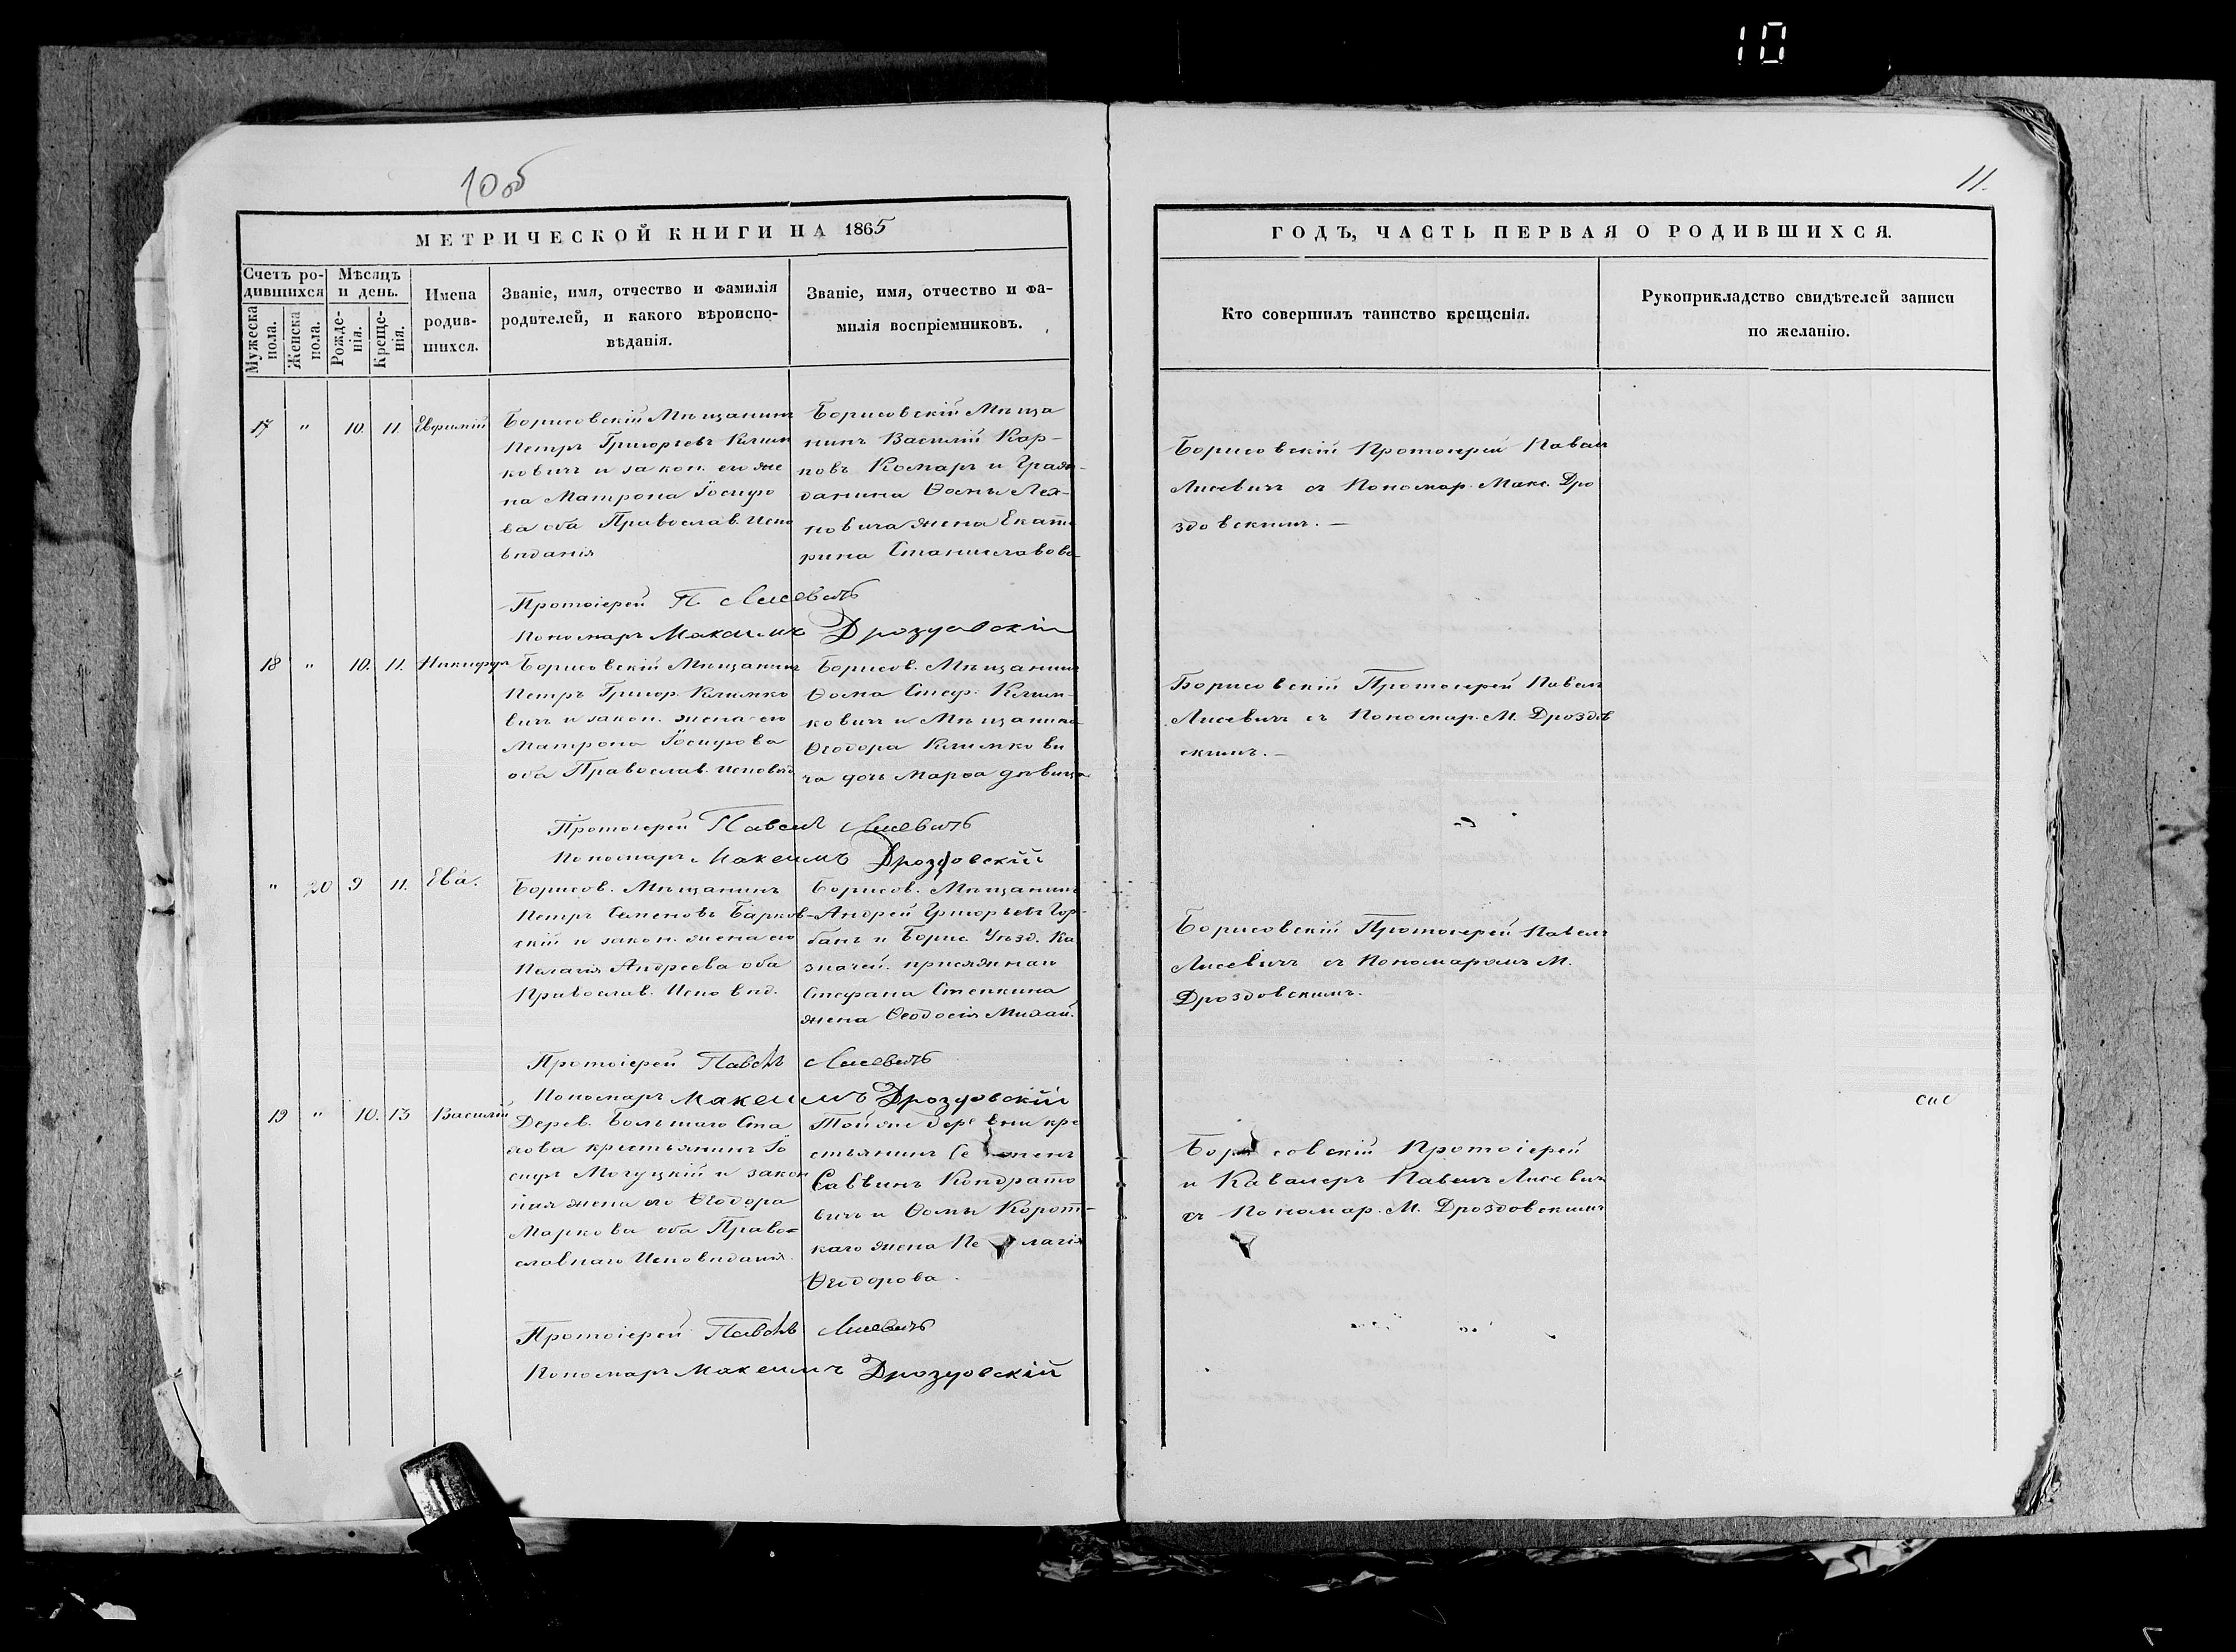 10
10 об
11.
МЕТРИЧЕСКОЙ КНИГИ НА 1865
ГОДЪ, ЧАСТЬ ПЕРВАЯ О РОДИВШИХСЯ.
Счетъ ро-
дившихся
Мужеска
пола.
Женска
пола.
Мѣсяцъ
и день.
Рожде-
нія.
Креще-
нія.
Имена
родив-
шихся.
Званіе, имя, отчество и фамилія
родителей, и какого вѣроиспо-
вѣданія.
Званіе, имя, отчество и фа-
милія воспріемниковъ.
Кто совершилъ таинство крещенія.
Рукоприкладство свидѣтелей записи
по желанію.
17 " 10. 11. Евфимій
Борисовскій Мѣщанинъ
Петръ Григорьевъ Клим
ковичъ и закон. его же
на Матрона Іосифо
ва оба Православ. Испо
вѣданія
Борисовскій Мѣща
нинъ Василій Кар-
повъ Комаръ и Граж-
данина Ѳомы Лех-
новича жена Екате
рина Станиславова
Борисовскій Протоіерей Павелъ
Лисевичъ съ Пономар. Макс. Дро
здовскимъ. —
Протоіерей П. Лисевичъ
Пономарь Максимъ Дроздовскій
18 " 10. 11. Никифоръ
Борисовскій Мѣщанинъ
Петръ Григор. Климко
вичъ и закон. жена его
Матрона Іосифова
оба Православ. Исповѣд
Борисов. Мѣщанинъ
Ѳома Стеф. Клим-
ковичъ и Мѣщанина
Ѳеодора Климкови
ча дочь Марѳа дѣвица
Борисовскій Протоіерей Павелъ
Лисевичъ съ Пономар. М. Дроздов
скимъ. —
Протоіерей Павелъ Лисевичъ
Пономарь Максимъ Дроздовскій
" 20 9 11. Ева.
Борисов. Мѣщанинъ
Петръ Семеновъ Барков-
скій и закон. жена его
Пелагія Андреева оба
Православ. Исповѣд.
Борисов. Мѣщанинъ
Андрей Григорьевъ Гор-
банъ и Борис. Уѣзд. Ка
значей. присяжнаго
Стефана Стенкина
жена Ѳеодосія Михай.
Борисовскій Протоіерей Павелъ
Лисевичъ съ Пономаремъ М.
Дроздовскимъ.
Протоіерей Павелъ Лисевичъ
Пономарь Максимъ Дроздовскій
19 " 10. 13 Василій
Дерев. Большаго Ста
хова крестьянинъ Іо
сифъ Могуцкій и закон
ная жена его Ѳеодора
Маркова оба Право=
славнаго Исповѣданія.
Той же деревни кре
стьянинъ Семенъ
Саввинъ Кондрато
вичъ и Ѳомы Корот-
каго жена Пелагія
Ѳеодорова.
Борисовскій Протоіерей
и Кавалеръ Павелъ Лисевичъ
съ Пономар. М. Дроздовскимъ
Протоіерей Павелъ Лисевичъ
Пономарь Максимъ Дроздовскій